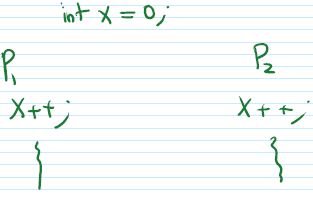 int x = 0;
P1 P2
X++; X++;
}  }